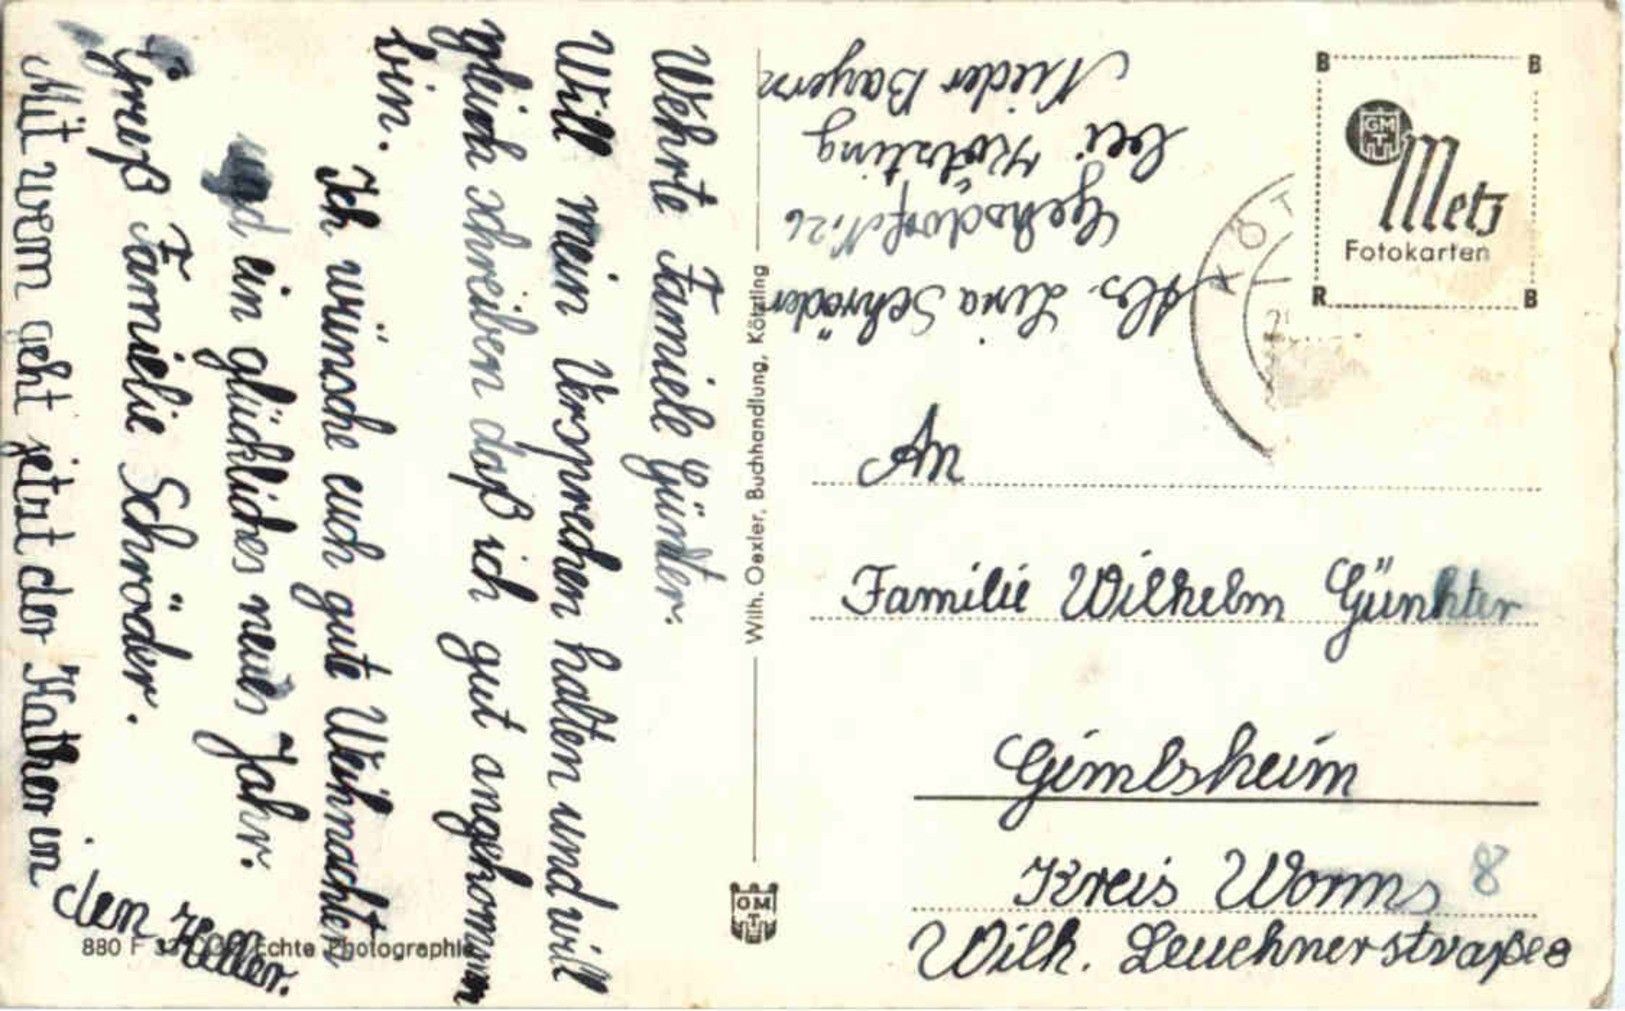 Wehrte Famiele Günter.
Will mein Versprechen halten und will
gleich schreiben daß ich gut angekommen
bin.
Ich wünsche euch gute Weihnachten
und ein glückliches neues Jahr.
Gruß Famielie Schröder.
Mit wem geht jetzt der Kather in
den Keller.
880 F Echte Photographie
Wilh. Oexler, Buchhandlung, Kötzting
GMT
Abs. Lina Schröder
Gehsdorf Nr. 26
bei Kötzting
Nieder Bayern
KÖT
B B
GMT
Metz
Fotokarten
R B
An
Familie Wilhelm Günhter
Gimbsheim
Kreis Worms 8
Wilh. Leuchnerstraße 8